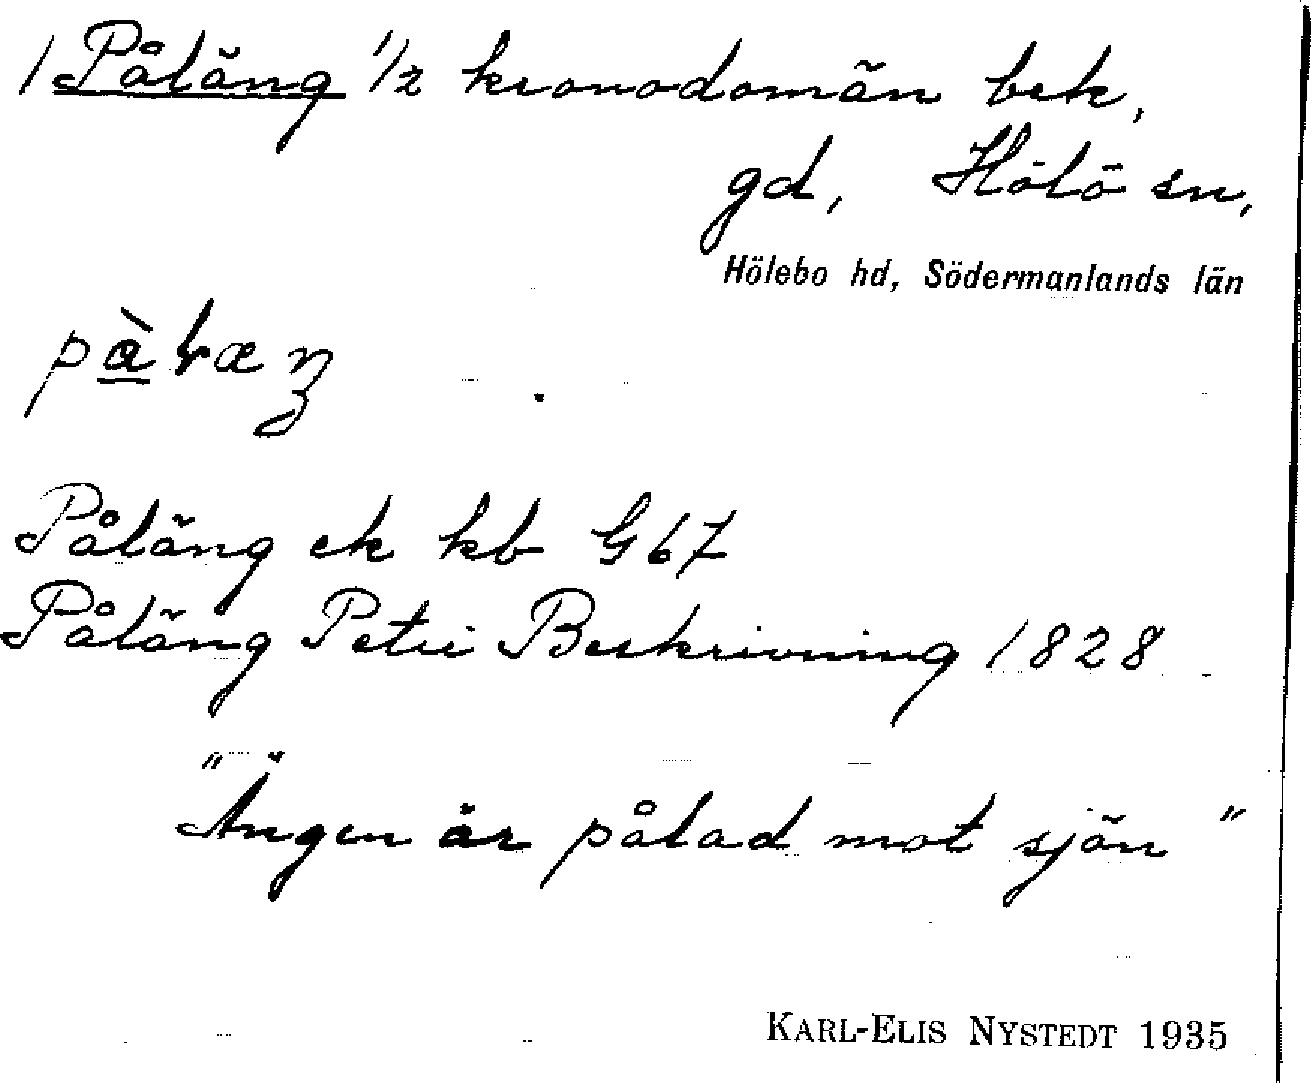 1 Påläng 1/2 kronodomän bek,
gd, Hölö sn,
Hölebo hd, Södermanlands län
pàlæŋ
Påläng ek kb G67
Påläng Petri Beskrivning 1828
"Ängen är pålad mot sjön"
KARL-ELIS NYSTEDT 1935